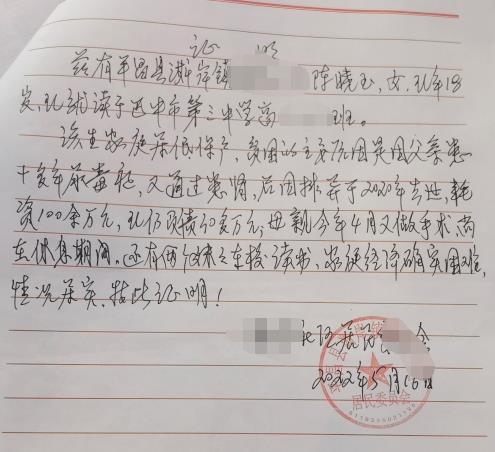 证 明
兹有平昌县 岸镇 陈晓玉,女,现年18
岁,现就读于巴中市第三中学高 班。
该生家庭系低保户,贫困的主要原因是因父亲患
十多年尿毒症,又通过患肾,后因排异于2020年去世,耗
资100余万元,现仍负债 万元;母亲今年4月又做手术,尚
在休息期间。还有两 在校读书,家庭经济确实困难,
情况属实,特此证明!
社区居 会
2022年5月16日
居民委员会